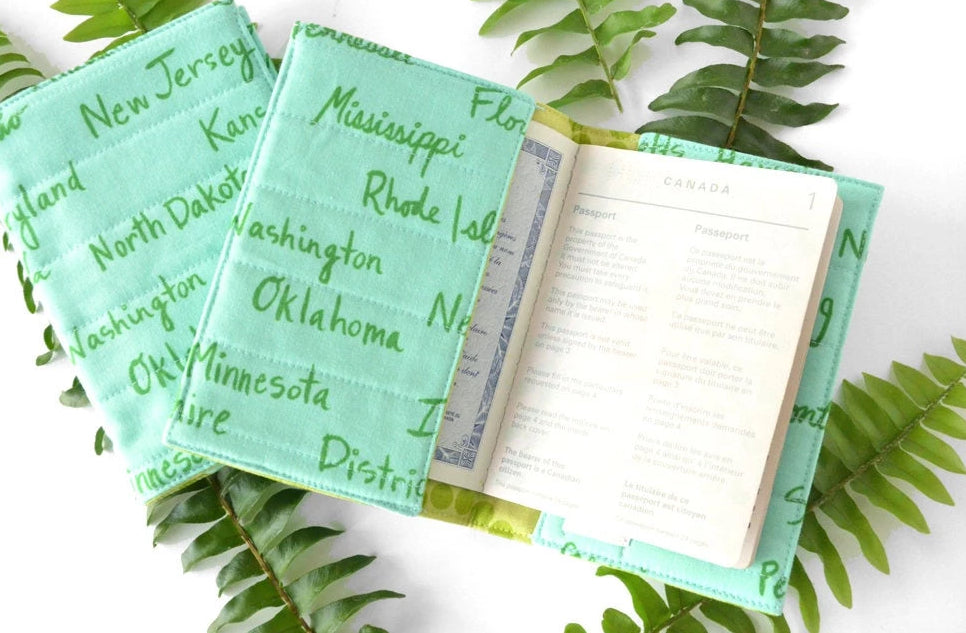 New Jersey
Kans
ryland
North Dakota
Washington
Okl
nneso
Tennessee
Mississippi
Flo
Rhode Isl
Washington
Oklahoma
Ne
Minnesota
ire
I
Distric
CANADA
1
Passport
This passport is the
property of the
Government of Canada.
It must not be altered.
You must take every
precaution to safeguard it.
This passport may be used
only by the bearer in whose
name it is issued.
This passport is not valid
unless signed by the bearer
on page 3
Please fill in the particulars
requested on page 4
Please read the
page 4 and the inside
back cover
The bearer of this
passport is a Canadian
citizen.
Passeport
Ce passeport est la
propriété du gouvernement
du Canada. Il ne doit subir
aucune modification.
Vous devez en prendre le
plus grand soin.
Ce passeport ne peut être
utilisé que par son titulaire.
Pour être valable, ce
passeport doit porter la
signature du titulaire en
page 3
renseignements demandés
en page 4
page 4 ainsi qu'à l'intérieur
de la couverture arrière.
Le titulaire de ce
passeport est citoyen
canadien.
N
g
mont
S
Pe